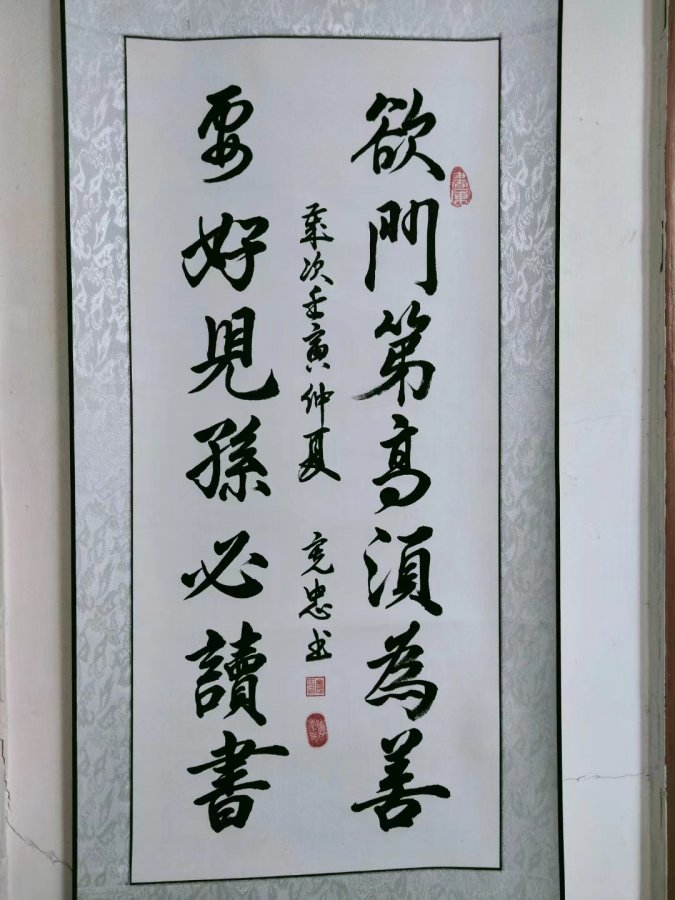 欲門第高須為善
要好兒孫必讀書
歲次壬寅仲夏
克忠书